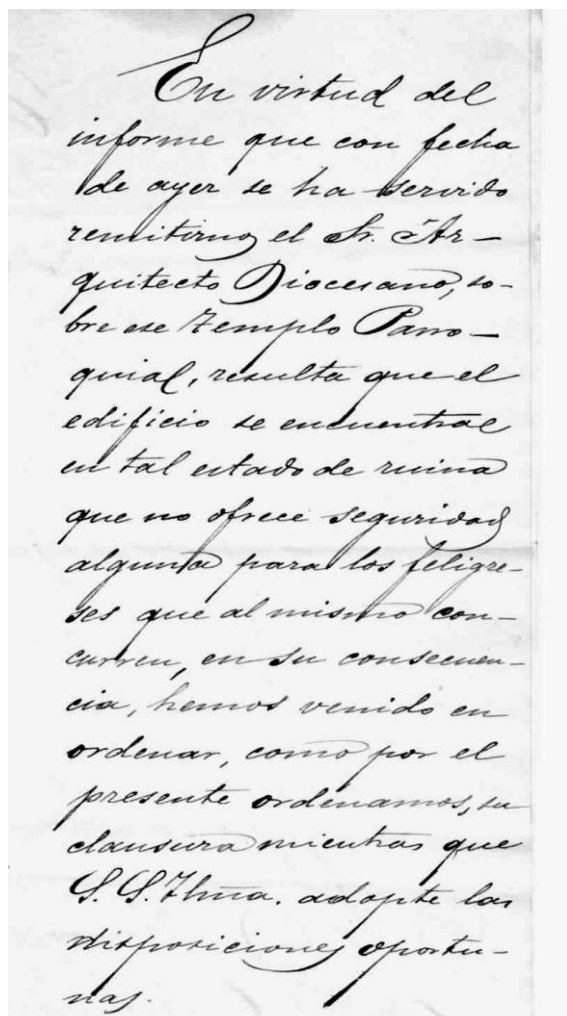 En virtud del
informe que con fecha
de ayer se ha servido
remitirnos el Sr. Ar-
quitecto Diocesano, so-
bre ese Templo Parro-
quial, resulta que el
edificio se encuentra
en tal estado de ruina
que no ofrece seguridad
alguna para los feligre-
ses que al mismo con-
curren, en su consecuen-
cia, hemos venido en
ordenar, como por el
presente ordenamos, su
clausura mientras que
S. S. Ilma. adopte las
disposiciones oportu-
nas.